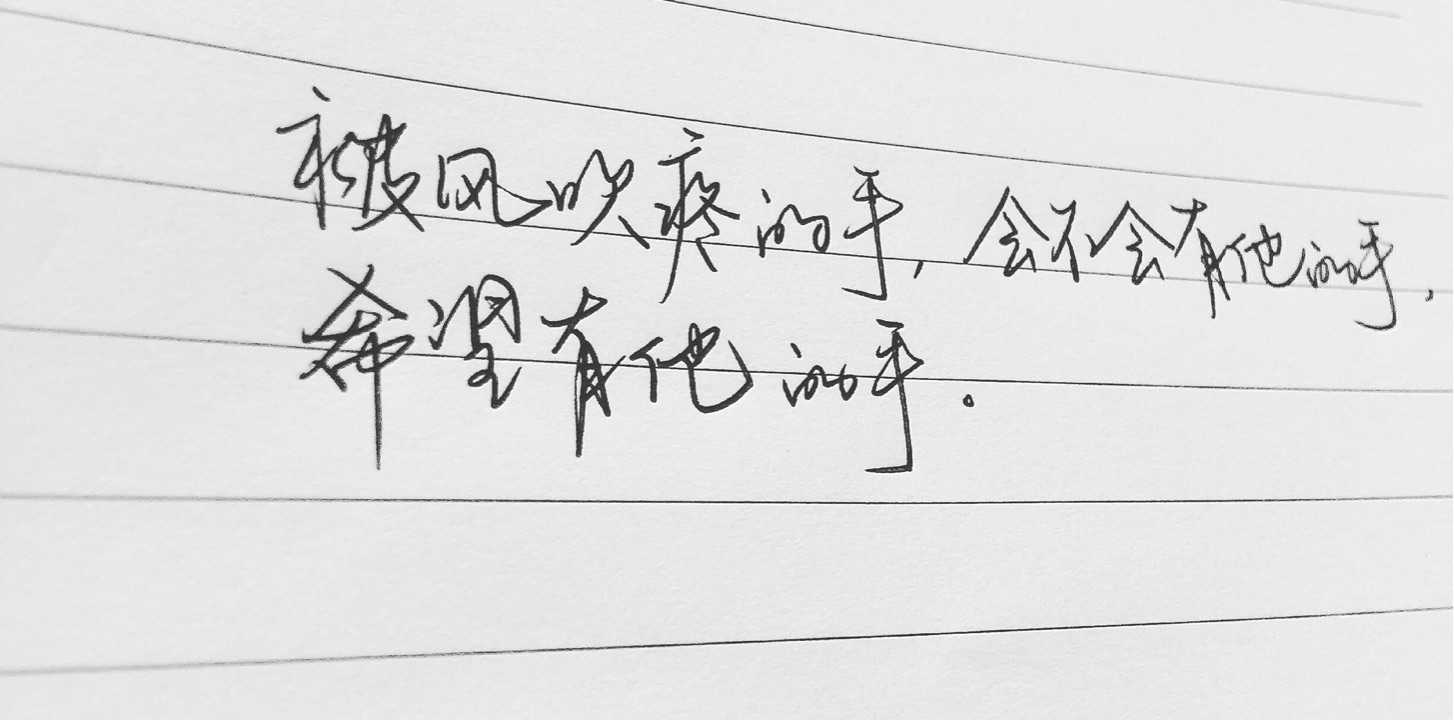 被风吹疼的手，会不会有他的手，
希望有他的手。